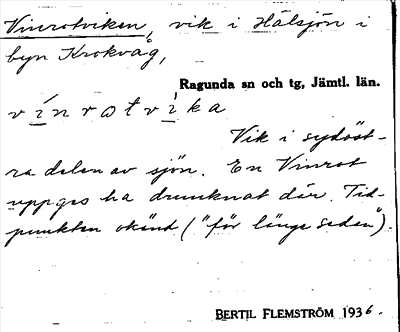 Vinrotviken, vik i Hälsjön i
byn Krokvåg,
Ragunda sn och tg, Jämtl. län.
vì̲nrotvì̲ka
Vik i sydöst-
ra delen av sjön. En Vinrot
uppges ha drunknat där. Tid-
punkten okänd ("för länge sedan").
BERTIL FLEMSTRÖM 1936.